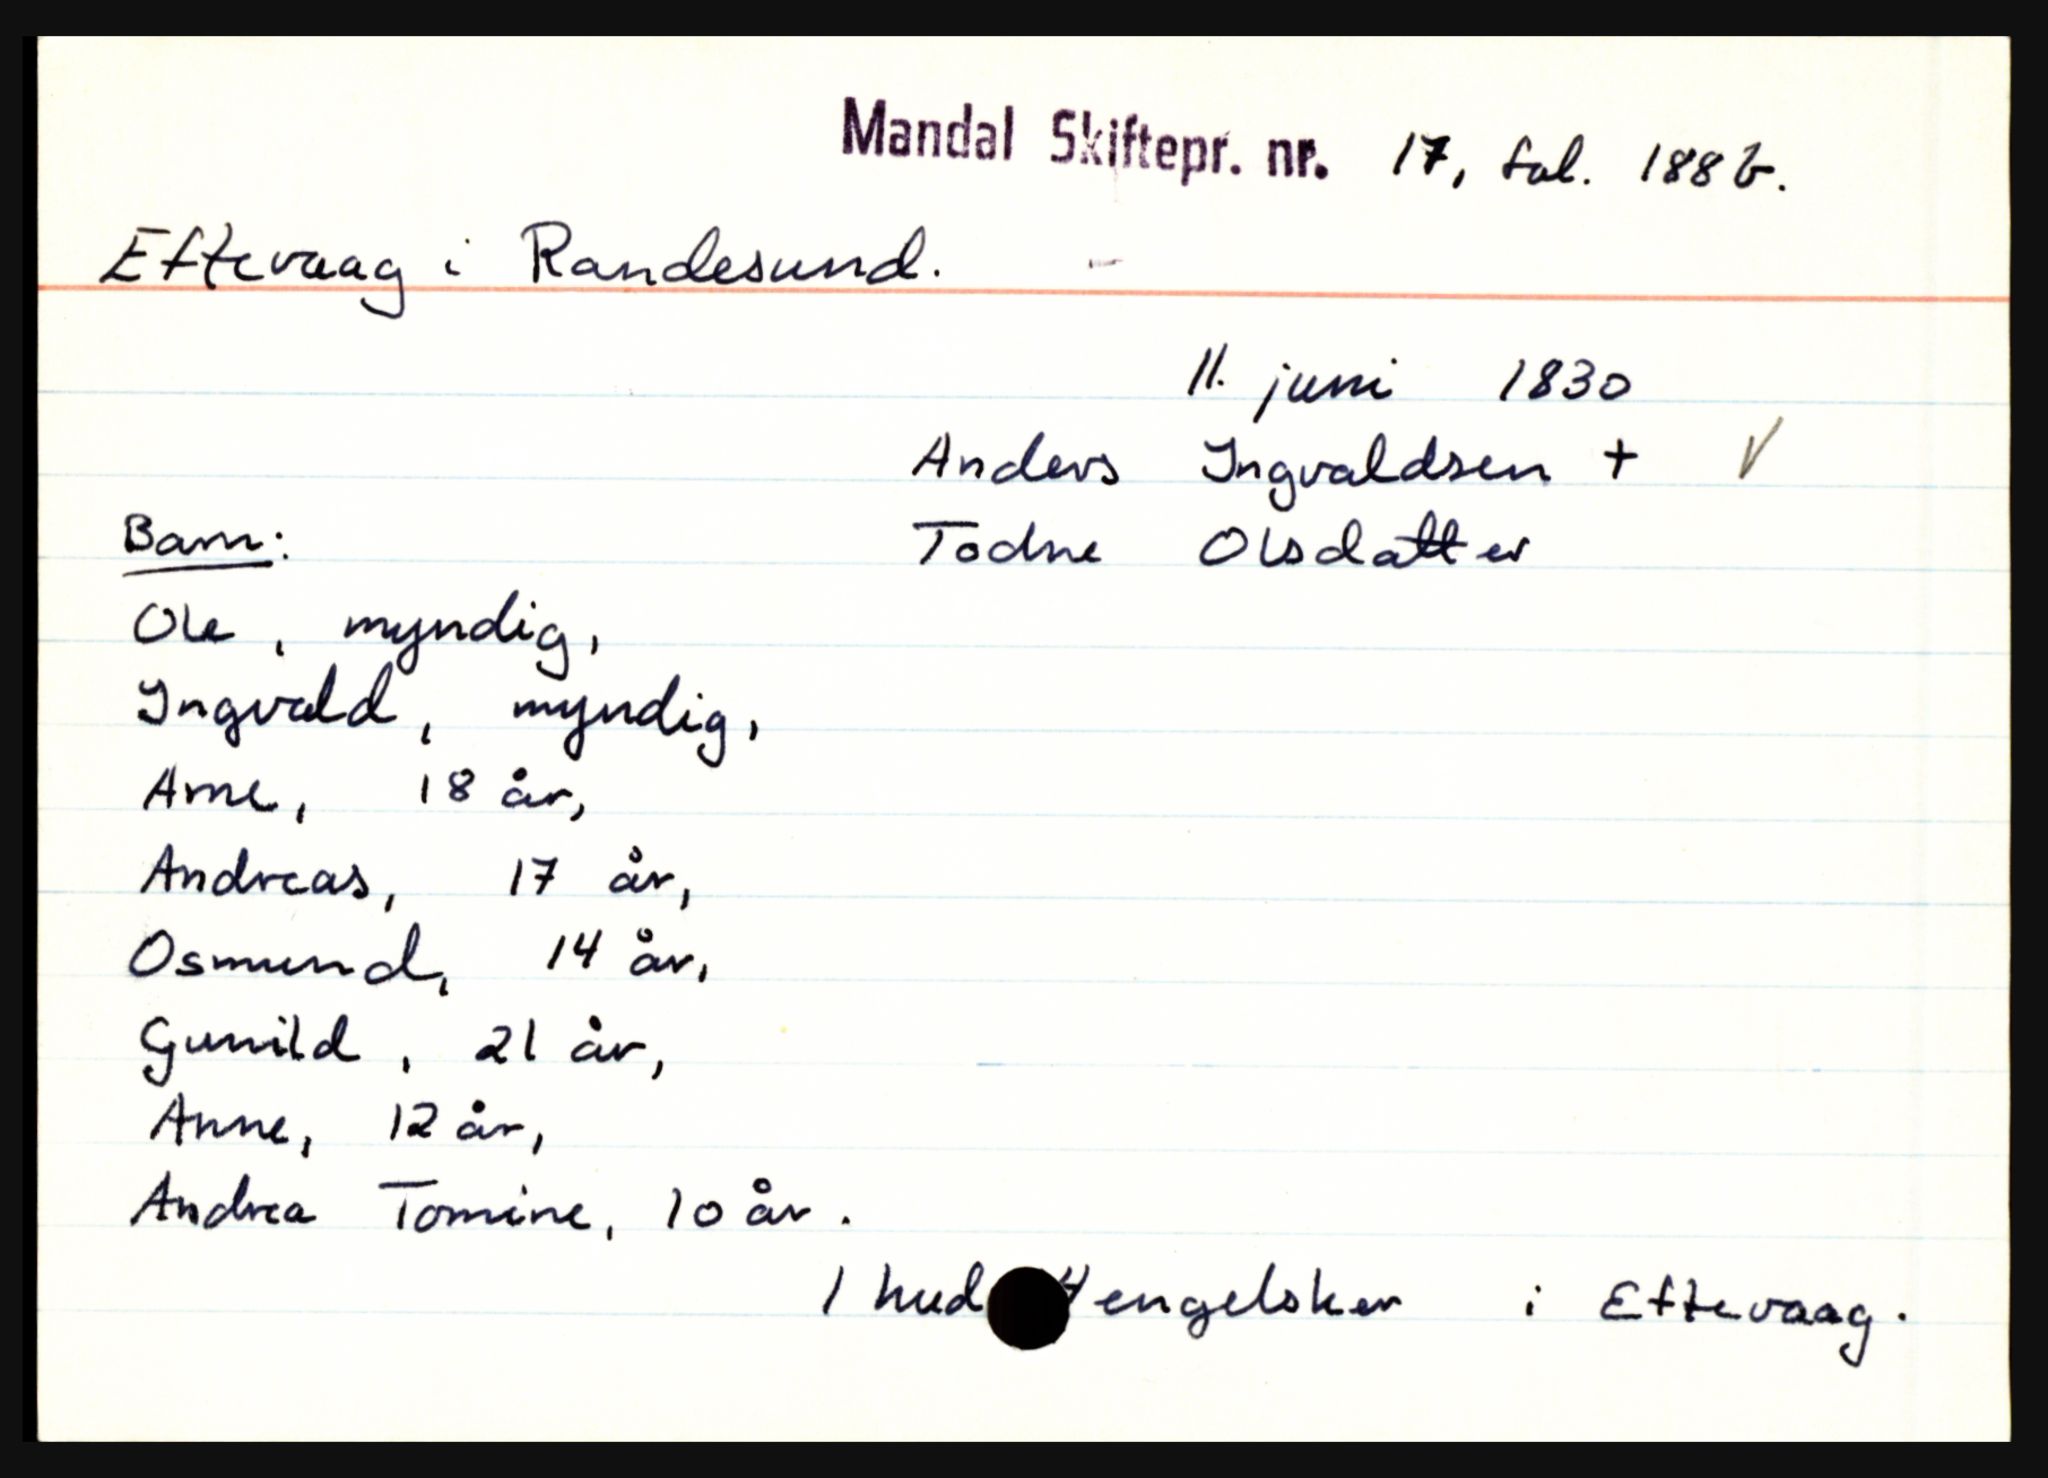 Mandal Skiftepr. nr. 17, fol. 188 b.
Eftevaag i Randesund. -
11. juni 1830
Anders Ingvaldsen + √
Todne Olsdatter
Barn:
Ole, myndig,
Ingvald, myndig,
Arne, 18 år,
Andreas, 17 år,
Osmund, 14 år,
Gunild, 21 år,
Anne, 12 år,
Andrea Tomine, 10 år.
1 hud Hengelsker i Eftevaag.